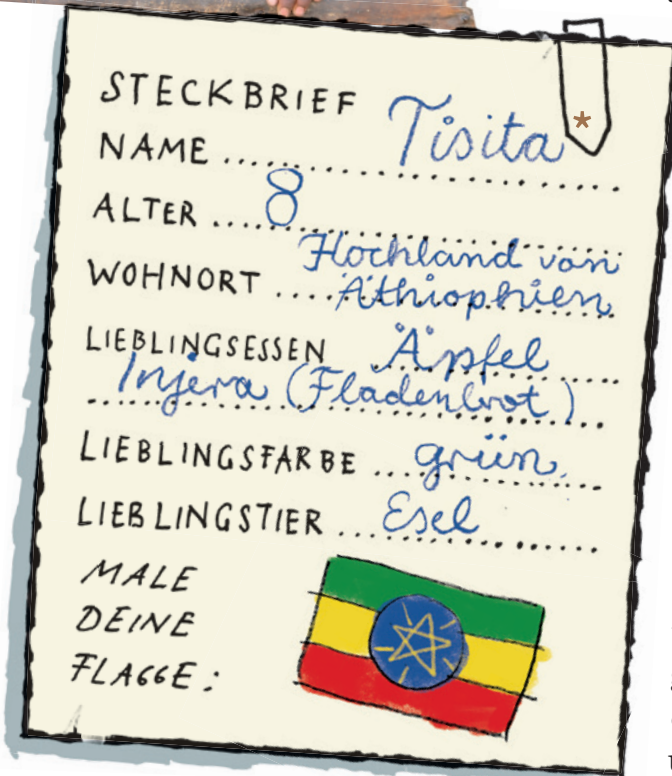 STECKBRIEF
NAME ... Tisita
ALTER ... 8
Hochland von
WOHNORT ... Äthiophien
LIEBLINGSESSEN ... Äpfel
Injera (Fladenbrot)
LIEBLINGSFARBE ... grün
LIEBLINGSTIER ... Esel
MALE
DEINE
FLAGGE: